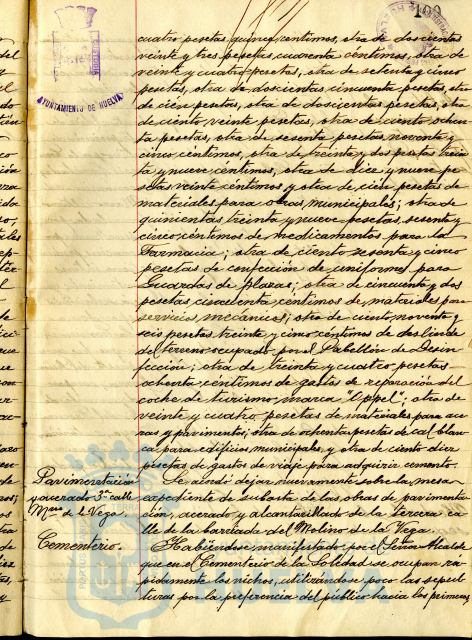 109
AYUNTAMIENTO DE HUELVA
cuatro pesetas quince céntimos, otra de doscientas
veinte y tres pesetas cuarenta céntimos, otra de
veinte y cuatro pesetas, otra de setenta y cinco
pesetas, otra de doscientas cincuenta pesetas, otra
de cien pesetas, otra de doscientas pesetas, otra
de ciento veinte pesetas, otra de ciento ochen-
ta pesetas, otra de sesenta pesetas noventa y
cinco céntimos, otra de treinta y dos pesetas trein-
ta y nueve céntimos, otra de diez y nueve pe-
setas veinte céntimos y otra de cien pesetas de
materiales para obras municipales; otra de
quinientas treinta y nueve pesetas, sesenta y
cinco céntimos de medicamentos para la
Farmacia; otra de ciento sesenta y cinco
pesetas de confección de uniformes para
Guardas de plazas; otra de cincuenta y dos
pesetas cincuenta céntimos de materiales para
servicio mecánico; otra de ciento noventa y
seis pesetas treinta y cinco céntimos de deslinde
del terreno ocupado por el Pabellón de Desin
fección; otra de treinta y cuatro pesetas
ochenta céntimos de gastos de reparación del
coche de turismo, marca "Oppel"; otra de
veinte y cuatro pesetas de materiales para au-
ras y pavimento; otra de ochenta pesetas de cal blan-
ca para edificios municipales, y otra de ciento diez
pesetas de gastos de viaje para adquirir cemento.
Pavimentación
y acerado 3ª calle
Mno de la Vega.
Se acordó dejar nuevamente sobre la mesa
expediente de subasta de las obras de pavimenta-
ción, acerado y alcantarillado de la tercera ca-
lle de la barriada del Molino de la Vega.
Cementerio.
Habiéndose manifestado por el Señor Alcalde
que en el Cementerio de la Soledad se ocupan rá-
pidamente los nichos, utilizándose poco las sepul-
turas por la preferencia del público hacia los primeros